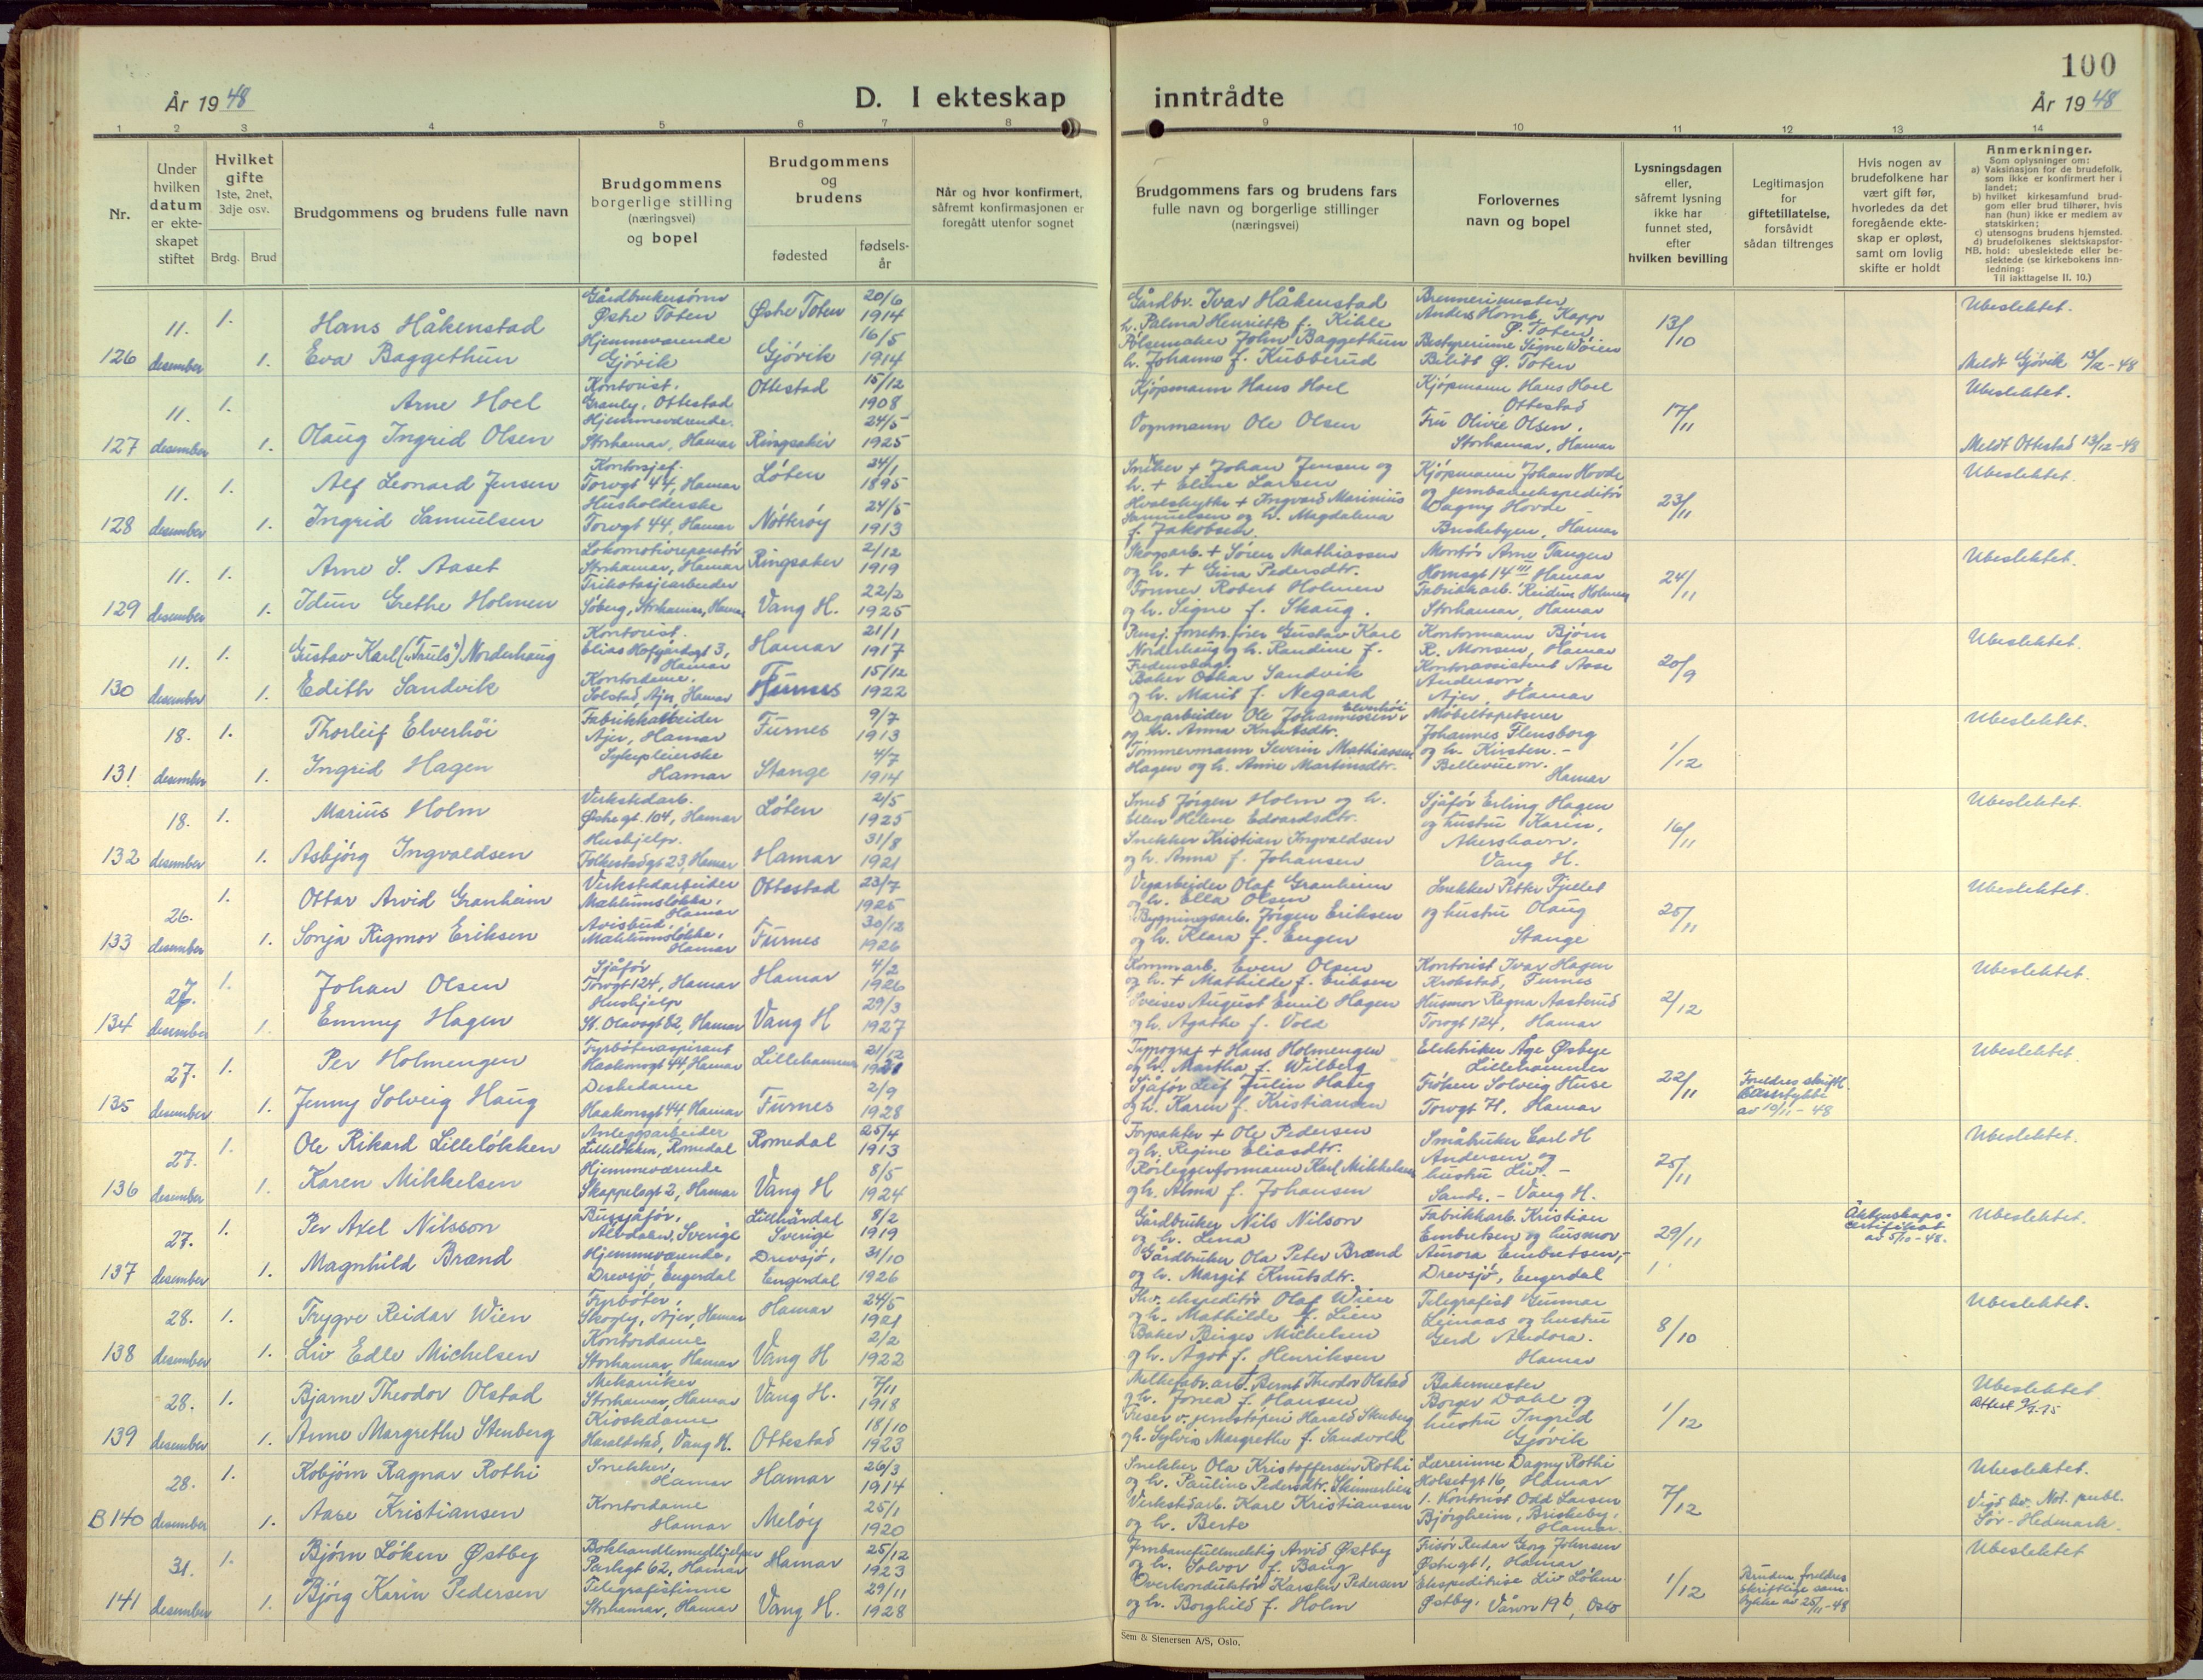 100
År 1948
D. I ekteskap inntrådte
År 1948
1 2 3 4 5 6 7 8 9 10 11 12 13 14
Nr.
Under hvilken datum er ekte-skapet stiftet
Hvilket gifte 1ste, 2net, 3dje osv.
Brdg. Brud
Brudgommens og brudens fulle navn
Brudgommens borgerlige stilling (næringsvei) og bopel
Brudgommens og brudens
fødested
fødsels-år
Når og hvor konfirmert, såfremt konfirmasjonen er foregått utenfor sognet
Brudgommens fars og brudens fars fulle navn og borgerlige stillinger (næringsvei)
Forlovernes navn og bopel
Lysningsdagen eller, såfremt lysning ikke har funnet sted, efter hvilken bevilling
Legitimasjon for giftetillatelse, forsåvidt sådan tiltrenges
Hvis nogen av brudefolkene har vært gift før, hvorledes da det foregående ekte-skap er opløst, samt om lovlig skifte er holdt
Anmerkninger.
Som oplysninger om:
a) Vaksinasjon for de brudefolk, som ikke er konfirmert her i landet;
b) hvilket kirkesamfund brud-gom eller brud tilhører, hvis han (hun) ikke er medlem av statskirken;
c) utensogns brudens hjemsted.
d) brudefolkenes slektskapsfor-
NB. hold: ubeslektede eller be-slektede (se kirkebokens inn-ledning:
Til iakttagelse II. 10.)
126 11. desember 1. 1.
Hans Håkenstad
Eva Baggethun
Gårdbrukersønn
Østre Toten
Hjemmeværende
Gjøvik
Østre Toten 20/6 1914
Gjøvik 16/5 1914
Gårdbr. Ivar Håkenstad
h. Palma Henriette f. Kihle
Pølsemaker John Baggethun
h. Johanne f. Kubberud
Brennerimester
Anders Hornb. Kapp
Ø. Toten
Bestyrerinne Signe Wøien
Bilitt Ø. Toten
13/10
Ubeslektet.
Meldt Gjøvik 13/12-48
127 11. desember 1. 1.
Arne Hoel
Olaug Ingrid Olsen
Kontorist.
Granly, Ottestad
Hjemmeværende.
Storhamar, Hamar
Ottestad 15/12 1908
Ringsaker 24/5 1925
Kjøpmann Hans Hoel
Vognmann Ole Olsen
Kjøpmann Hans Hoel
Ottestad
Fru Olivie Olsen,
Storhamar, Hamar
17/11
Ubeslektet.
Meldt Ottestad 13/12-48
128 11. desember 1. 1.
Alf Leonard Jensen
Ingrid Samuelsen
Kontorsjef.
Torvgt 44, Hamar
Husholderske
Torvgt 44, Hamar
Løten 24/1 1895
Nøtterøy 24/5 1913
Snekker + Johan Jensen og
h. + Eline Larsen
Hvalskytter + Ingvard Marinius
Samuelsen og h. Magdalena
f. Jakobsen.
Kjøpmann Johan Hovde
og jernbaneekspeditør
Dagny Hovde
Briskebyen, Hamar
23/11
Ubeslektet.
129 11. desember 1. 1.
Arne S. Aaset
Idun Grethe Holmen
Lokomotivreparatør
Storhamar, Hamar
Trikotasjearbeider
Søberg, Storhamar, Hamar
Ringsaker 2/12 1919
Vang H. 22/2 1925
Skogsarb. + Søren Mathiassen
og h. + Gina Pedersdtr.
Tønner Robert Holmen
og h. Signe f. Skaug.
Montør Arne Tangen
Hornsgt 14 III Hamar
Fabrikkarb. Reidun Holmen
Storhamar, Hamar
24/11
Ubeslektet.
130 11. desember 1. 1.
Gustav Karl ("Truls") Norderhaug
Edith Sandvik
Kontorist.
Elias Hofgårdsgt 3, Hamar
Kontordame.
Solstad, Ajer, Hamar
Hamar 21/1 1917
Furnes 15/12 1922
Pensj. forretn.fører Gustav Karl
Norderhaug og h. Randine f.
Fredensborg.
Baker Oskar Sandvik
og h. Marit f. Negaard
Kontormann Bjørn
R. Monsen, Hamar
Kontorassistent Aase
Anderson,
Ajer, Hamar
20/9
Ubeslektet.
131 18. desember 1. 1.
Thorleif Elverhøi
Ingrid Hagen
Fabrikkarbeider
Ajer, Hamar
Sykepleierske
Hamar
Furnes 9/7 1913
Stange 4/7 1914
Dagarbeider Ole Johannessen Elverhøi
og h. Anna Knutsdtr.
Tømmermann Severin Mathiassen
Hagen og h. Anne Martinsdtr.
Møbeltapetserer
Johannes Flensborg
og h. Kirsten. -
Bellevuevn.
Hamar
1/12
Ubeslektet.
132 18. desember 1. 1.
Marius Holm
Asbjørg Ingvaldsen
Verkstedarb.
Østregt. 104, Hamar
Hushjelp.
Folkestadgt 23, Hamar
Løten 2/5 1925
Hamar 31/8 1921
Smed Jørgen Holm og h.
Ellen Helene Edvardsdtr.
Snekker Kristian Ingvaldsen
og h. Anna f. Johansen
Sjåfør Erling Hagen
og hustru Karin,
Akershavn.
Vang H.
16/11
Ubeslektet.
133 26. desember 1. 1.
Ottar Arvid Granheim
Sonja Rigmor Eriksen
Verkstedarbeider
Mæhlumsløkka, Hamar
Avisbud,
Mæhlumsløkka, Hamar
Ottestad 23/7 1925
Furnes 30/12 1926
Vegarbeider Olaf Granheim
og h. Ella Olsen
Bygningsarb. Jørgen Eriksen
og h. Klara f. Engen
Snekker Petter Fjellet
og hustru Olaug
Stange
25/11
Ubeslektet.
134 27. desember 1. 1.
Johan Olsen
Emmy Hagen
Sjåfør
Torvgt 124, Hamar
Hushjelp
St. Olavsgt 82, Hamar
Hamar 4/2 1926
Vang H 29/3 1927
Kommarb. Even Olsen
og h. + Mathilde f. Eriksen
Sveiser August Emil Hagen
og h. Agathe f. Vold
Kontorist Ivar Hagen
Krokstad, Furnes
Husmor Ragna Aasterud
Torvgt 124, Hamar
2/12
Ubeslektet.
135 27. desember 1. 1.
Per Holmengen
Jenny Solveig Haug
Fyrbøteraspirant
Haakonsgt 44, Hamar
Deskedame
Haakonsgt 44, Hamar
Lillehammer 21/12
Furnes 2/9 1928
Typograf + Hans Holmengen
og h. Martha f. Wilberg
Sjåfør Leif Julin Haug
og h. Karen f. Kristiansen
Elektriker Åge Østbye
Lillehammer
Frøken Solveig Huse
Torvgt 71. Hamar
22/11
Foreldres skriftl.
av 10/11-48
Ubeslektet
136 27. desember 1. 1.
Ole Rikard Lilleløkken
Karen Mikkelsen
Anleggsarbeider
Lilleløkken, Romedal
Hjemmeværende
Skappelsgt 2, Hamar
Romedal 25/4 1913
Vang H 8/5 1924
Forpakter + Ole Pedersen
og h. Regine Eliasdtr.
Rørleggerformann Karl Mikkelsen
og h. Alma f. Johansen
Småbruker Carl H
Andersen og
hustru Liv. -
Sands. - Vang H.
25/11
Ubeslektet.
137 27. desember 1. 1.
Per Axel Nilsson
Magnhild Brænd
Bussjåfør,
Älvdalen, Sverige
Hjemmeværende,
Drevsjø, Engerdal
Lillhärdal Sverige 8/2 1919
Drevsjø, Engerdal 31/10 1926
Gårdbruker Nils Nilson
og h. Lena
Gårdbruker Ola Peter Brænd
og h. Margit Knutsdtr.
Fabrikkarb. Kristian
Embretsen og husmor
Aurora Embretsen,-
Drevsjø, Engerdal
29/11
Äktenskaps-
certifikat
av 5/10-48.
Ubeslektet.
138 28. desember 1. 1.
Trygve Reidar Wien
Liv Edle Michelsen
Fyrbøter,
Skogly, Ajer, Hamar
Kontordame
Storhamar, Hamar
Hamar 24/5 1921
Vang H 2/2 1922
Thv. ekspeditør Olaf Wien
og h. Mathilde f. Lien
Baker Birger Michelsen
og h. Agot f. Henriksen
Telegrafist Gunnar
Leinaas og hustru
Gerd Andora.
Hamar
8/10
Ubeslektet.
139 28. desember 1. 1.
Bjarne Theodor Olstad
Anne Margrethe Stenberg
Mekaniker
Storhamar, Hamar
Kioskdame
Haraldstad, Vang H.
Vang H. 7/11 1918
Ottestad 18/10 1923
Melkefabr.arb. Bernt Theodor Olstad
og h. Jonea f. Hansen
Freser v. jernstøperi Harald Stenberg
og h. Sylvia Margrethe f. Sandvold
Bakermester
Borger Dahl og
hustru Ingrid
Gjøvik
1/12
Ubeslektet.
Attest 9/9-75
B 140 28. desember 1. 1.
Kobjørn Ragnar Rothi
Aase Kristiansen
Snekker,
Hamar
Kontordame
Hamar
Hamar 26/3 1914
Meløy 25/1 1920
Snekker Ola Kristoffersen Rothi
og h. Pauline Pedersdtr. Skinnerlien
Verkstedarb. Karl Kristiansen
og h. Berte
Lærerinne Dagny Rothi
Holsetgt 16, Hamar
1. Kontorist Odd Larsen
Bjørgheim, Briskeby,
Hamar.
7/12
Ubeslektet.
Vigd av Not. publ.
Sør-Hedmark.
141 31. desember 1. 1.
Bjørn Løken Østby
Bjørg Karin Pedersen
Bokhandlermedhjelper
Parkgt 62, Hamar
Telegrafistinne
Storhamar, Hamar
Hamar 25/12 1923
Vang H. 29/11 1928
Jernbanefullmektig Arvid Østby
og h. Solvor f. Bang
Overkonduktør Karsten Pedersen
og h. Borghild f. Holm
Frisør Reidar Georg Johnsen
Østregt 1, Hamar
Ekspeditrise Liv Løken
Østby, Vårvn 19b, Oslo
1/12
Brudens foreldres
skriftlige sam-
tykke av 25/11-48
Ubeslektet
Sem & Stenersen A/S, Oslo.